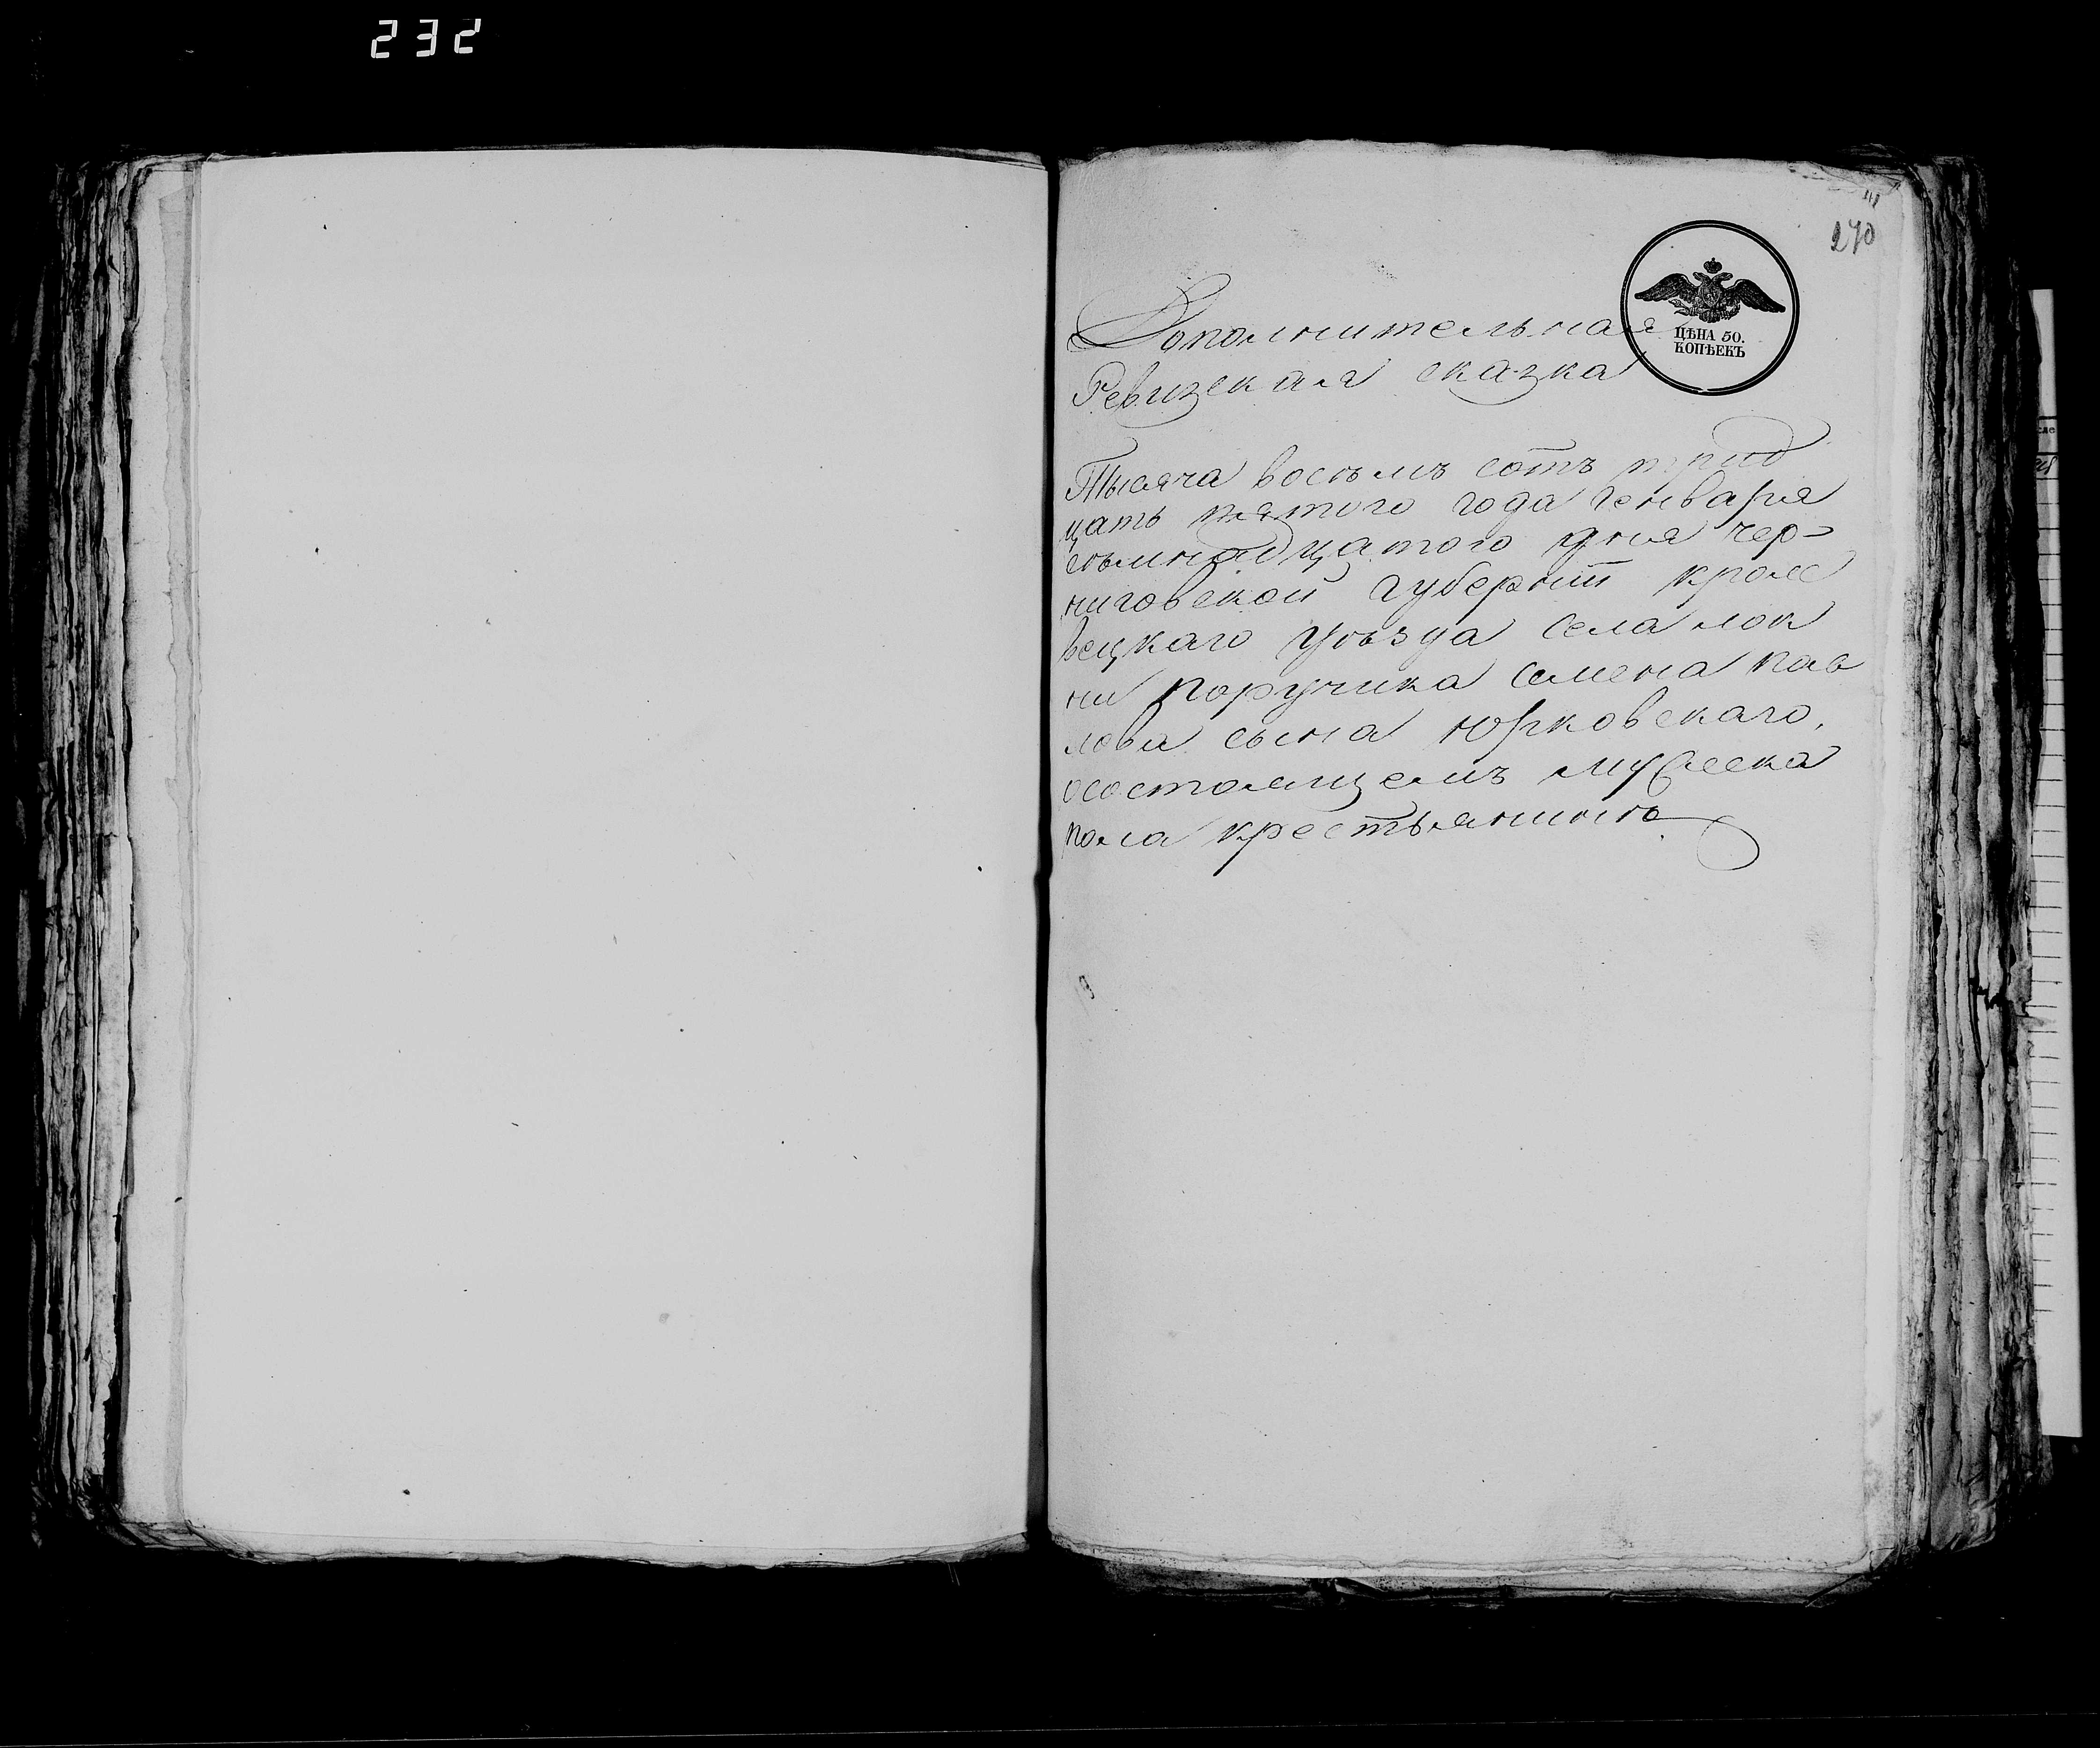 232
270
ЦѢНА 50.
КОПѢЕКЪ
Дополнительная
Ревизская сказка
Тысяча восемъ сотъ трид
цать пятого года Генваря
надцатого дня чер-
ниговской губернiи кроле
вецкаго уѣзда села лок
ни поручика Семена пав
лова сына Юрковскаго,
осостоящемъ мужеска
пола крестьянинѣ